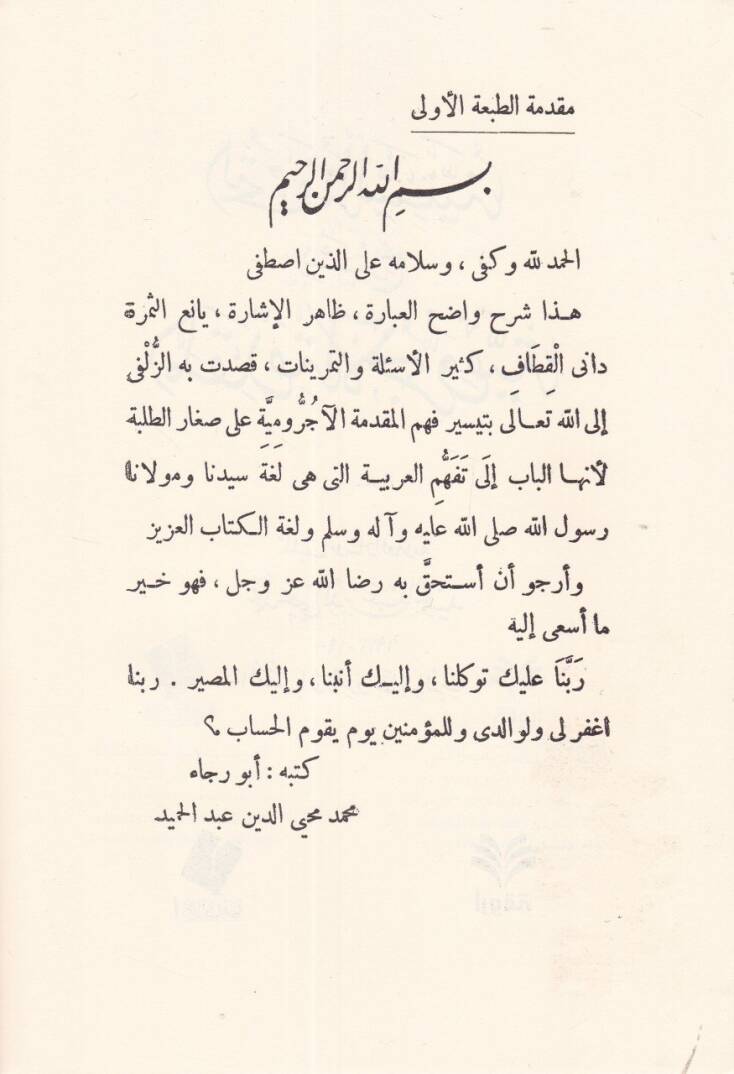 مقدمة الطبعة الأولى
بسم الله الرحمن الرحيم
الحمد لله وكفى ، وسلامه على الذين اصطفى
هـذا شرح واضح العبارة ، ظاهر الإشارة ، يانع الثمرة
دانى الْقِطَافِ ، كثير الأسئلة والتمرينات ، قصدت به الزُّلْفى
إلى الله تعـالى بتيسير فهم المقدمة الآجُرُّومِيَّةِ على صغار الطلبة
لأنهـا الباب إلَى تَفَهُّمِ العربيـة التى هى لغة سيدنا ومولانا
رسول الله صلى الله عليه وآله وسلم ولغة الـكتاب العزيز
وأرجو أن أسـتحقَّ به رضا الله عز وجل ، فهو خـير
ما أسعى إلية
رَبَّنَا عليك توكلنا ، وإليـك أنبنا ، وإليك المصير . ربنا
اغفر لى ولوالدى وللمؤمنين يوم يقوم الحساب ؟
كتبه : أبو رجاء
محمد محيي الدين عبد الحميد